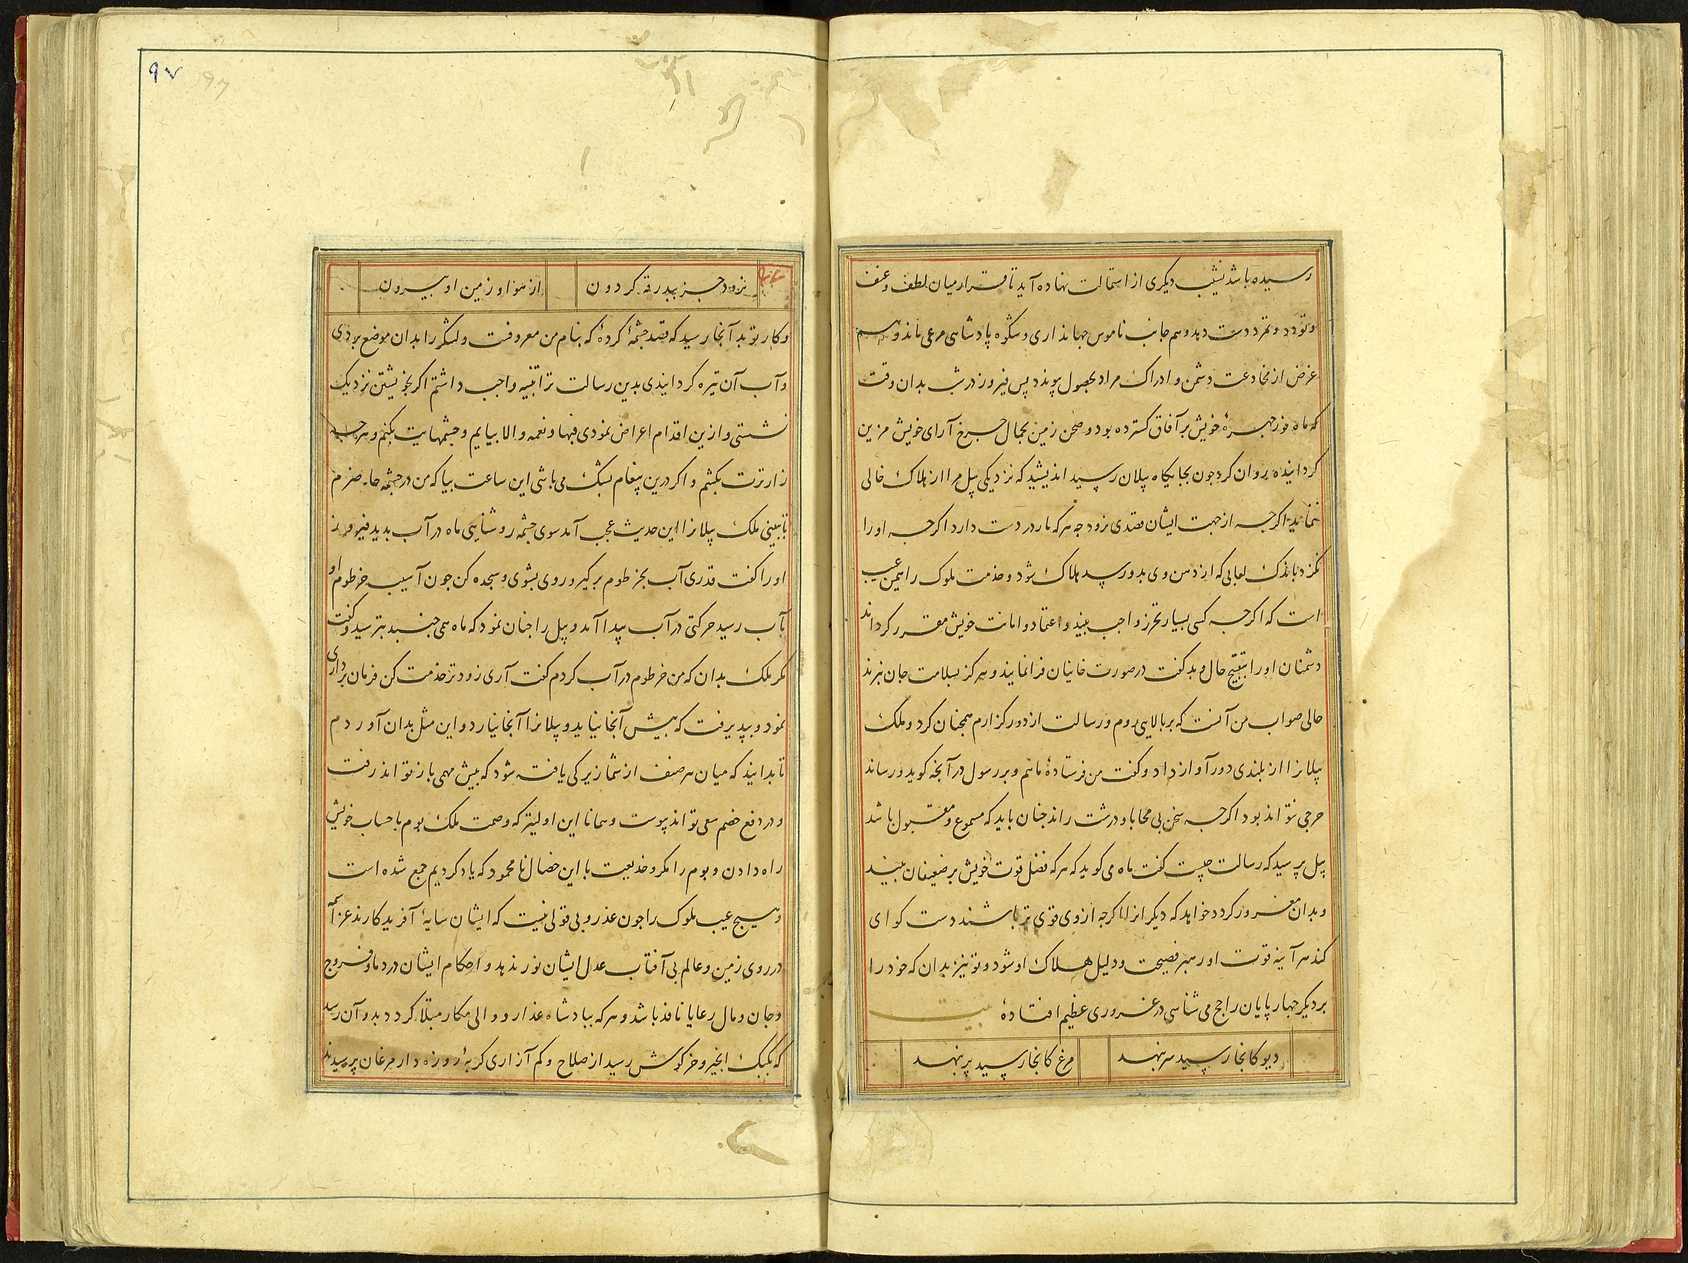 رسیده باشد نشیب دیگری از استمالت نهاده آید تا قرار میان لطف و عنف
و تودد و تمرد دست دهد و هم جانب ناموس جهانداری و شکوه پادشاهی مرعی ماند و هم
غرض از مخادعت دشمن و ادراک مراد بحصول پیوندد پس فیروز در شب بدان وقت
که ماه نور چهرهٔ خویش بر آفاق گسترده بود و صحن زمین بجمال چرخ آرای خویش مزین
گردانیده روان کرد چون بجایگاه پیلان رسید اندیشید که نزدیکی پیل مرا از هلاک خالی
نماند اگرچه از جهت ایشان قصدی نرود چه هر که مار در دست دارد اگرچه او را
نگزد باندک لعابی که از دهن وی بدو رسد هلاک شود و خدمت ملوک را همین عیب
است که اگرچه کسی بسیار تحرز واجب بیند و اعتماد و امانت خویش مقرر گرداند
دشمنان او را بتقبیح حال و بد گفت در صورت خائنان فرا نمایند و هرگز بسلامت جان نبرد
حالی صواب من آنست که بر بالایی روم و رسالت از دور گزارم همچنان کرد و ملک
پیلان را از بلندی دور آواز داد و گفت من فرستادهٔ ماهم و بر رسول در آنچه گوید و رساند
حرجی نتواند بود اگرچه سخن بی محابا و درشت راند چنان باید که مسموع و مقبول باشد
پیل پرسید که رسالت چیست گفت ماه می گوید که هر که فضل قوت خویش بر ضعیفان ببیند
و بدان مغرور گردد خواهد که دیگران را اگرچه از وی قوی تر باشند دست گرای
کند هر آینه قوت او رهبر فضیحت و دلیل هلاک او شود و تو نیز بدان که خود را
بر دیگر چهارپایان راجح می شناسی در غروری عظیم افتادهٔ بیت
دیو کانجا رسید سر بنهد مرغ کانجا رسید پر بنهد
۹۷
نرود جز ببدرقهٔ گردون از هوا و زمین او بیرون
و کار تو بدانجا رسید که قصد چشمهٔ کردهٔ که بنام من معروفست و لشکر را بدان موضع بردی
و آب آن تیره گردانیدی بدین رسالت ترا تنبیه واجب داشتم اگر بخویشتن نزدیک
نشستی و ازین اقدام اعراض نمودی فبها و نعمه و الا بیایم و چشمهایت بکنم و هرچه
زارترت بکشم و اگر درین پیغام بشک می باشی این ساعت بیا که من در چشمه حاضرم
تا ببینی ملک پیلان را این حدیث عجب آمد سوی چشمه روشنایی ماه در آب بدید فیروز
او را گفت قدری آب بخرطوم برگیر و روی بشوی و سجده کن چون آسیب خرطوم او
بآب رسید حرکتی در آب پیدا آمد و پیل را چنان نمود که ماه همی جنبد بترسید و گفت
مگر ملک بدان که من خرطوم در آب کردم گفت آری زودتر خدمت کن فرمان برداری
نمود و بپذیرفت که پیش آنجا نیاید و پیلان را آنجا نیارد و این مثل بدان آوردم
تا بدانید که میان هر صنف از شما زیرکی یافته شود که پیش مهمی باز تواند رفت
و در دفع خصم سعی تواند پیوست و همانا این اولیتر که وصمت ملک بوم با حساب خویش
راه دادن و بوم را مکر و خدیعت با این خصال نامحمود که یاد کردیم جمع شده است
و هیچ عیب ملوک را چون غدر و بی قولی نیست که ایشان سایهٔ آفریدگارند عز اسمه
در روی زمین و عالم بی آفتاب عدل ایشان نور ندهد و احکام ایشان در دماء و فروج
و جان و مال رعایا نافذ باشد و هر که بپادشاه غدار و والی مکار مبتلا گردد بدو آن رسد
که بکبک انجیر و خرگوش رسید از صلاح و کم آزاری گربهٔ روزه دار مرغان پرسیدند